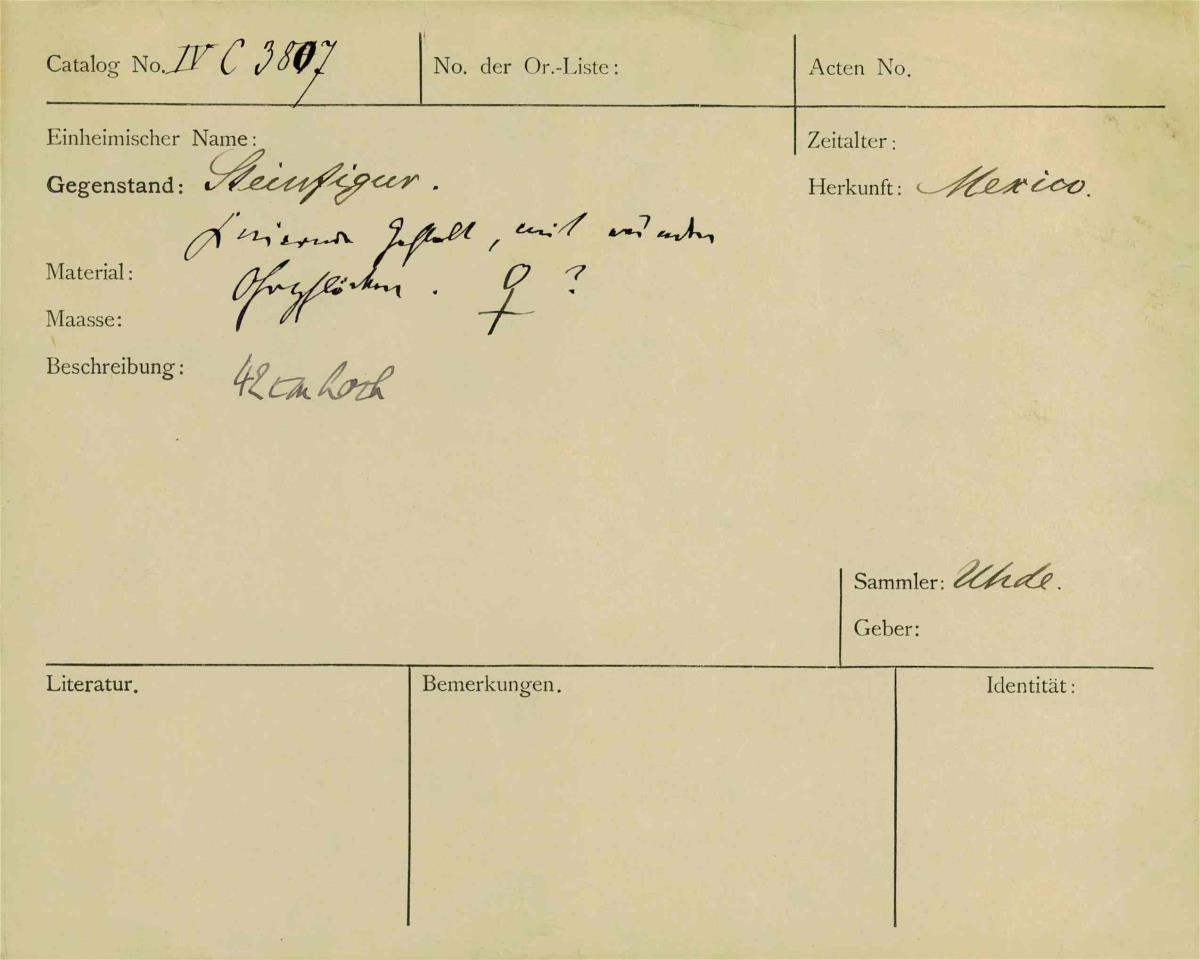 Catalog No. IV C 3807 No. der Or.-Liste: Acten No.
Einheimischer Name: Zeitalter:
Gegenstand: Steinfigur. Herkunft: Mexico.
Gestalt, mit runden
Material: Ohrpflöcken. ♀ ?
Maasse:
Beschreibung: 42 cm hoch
Sammler: Uhde.
Geber:
Literatur. Bemerkungen. Identität: